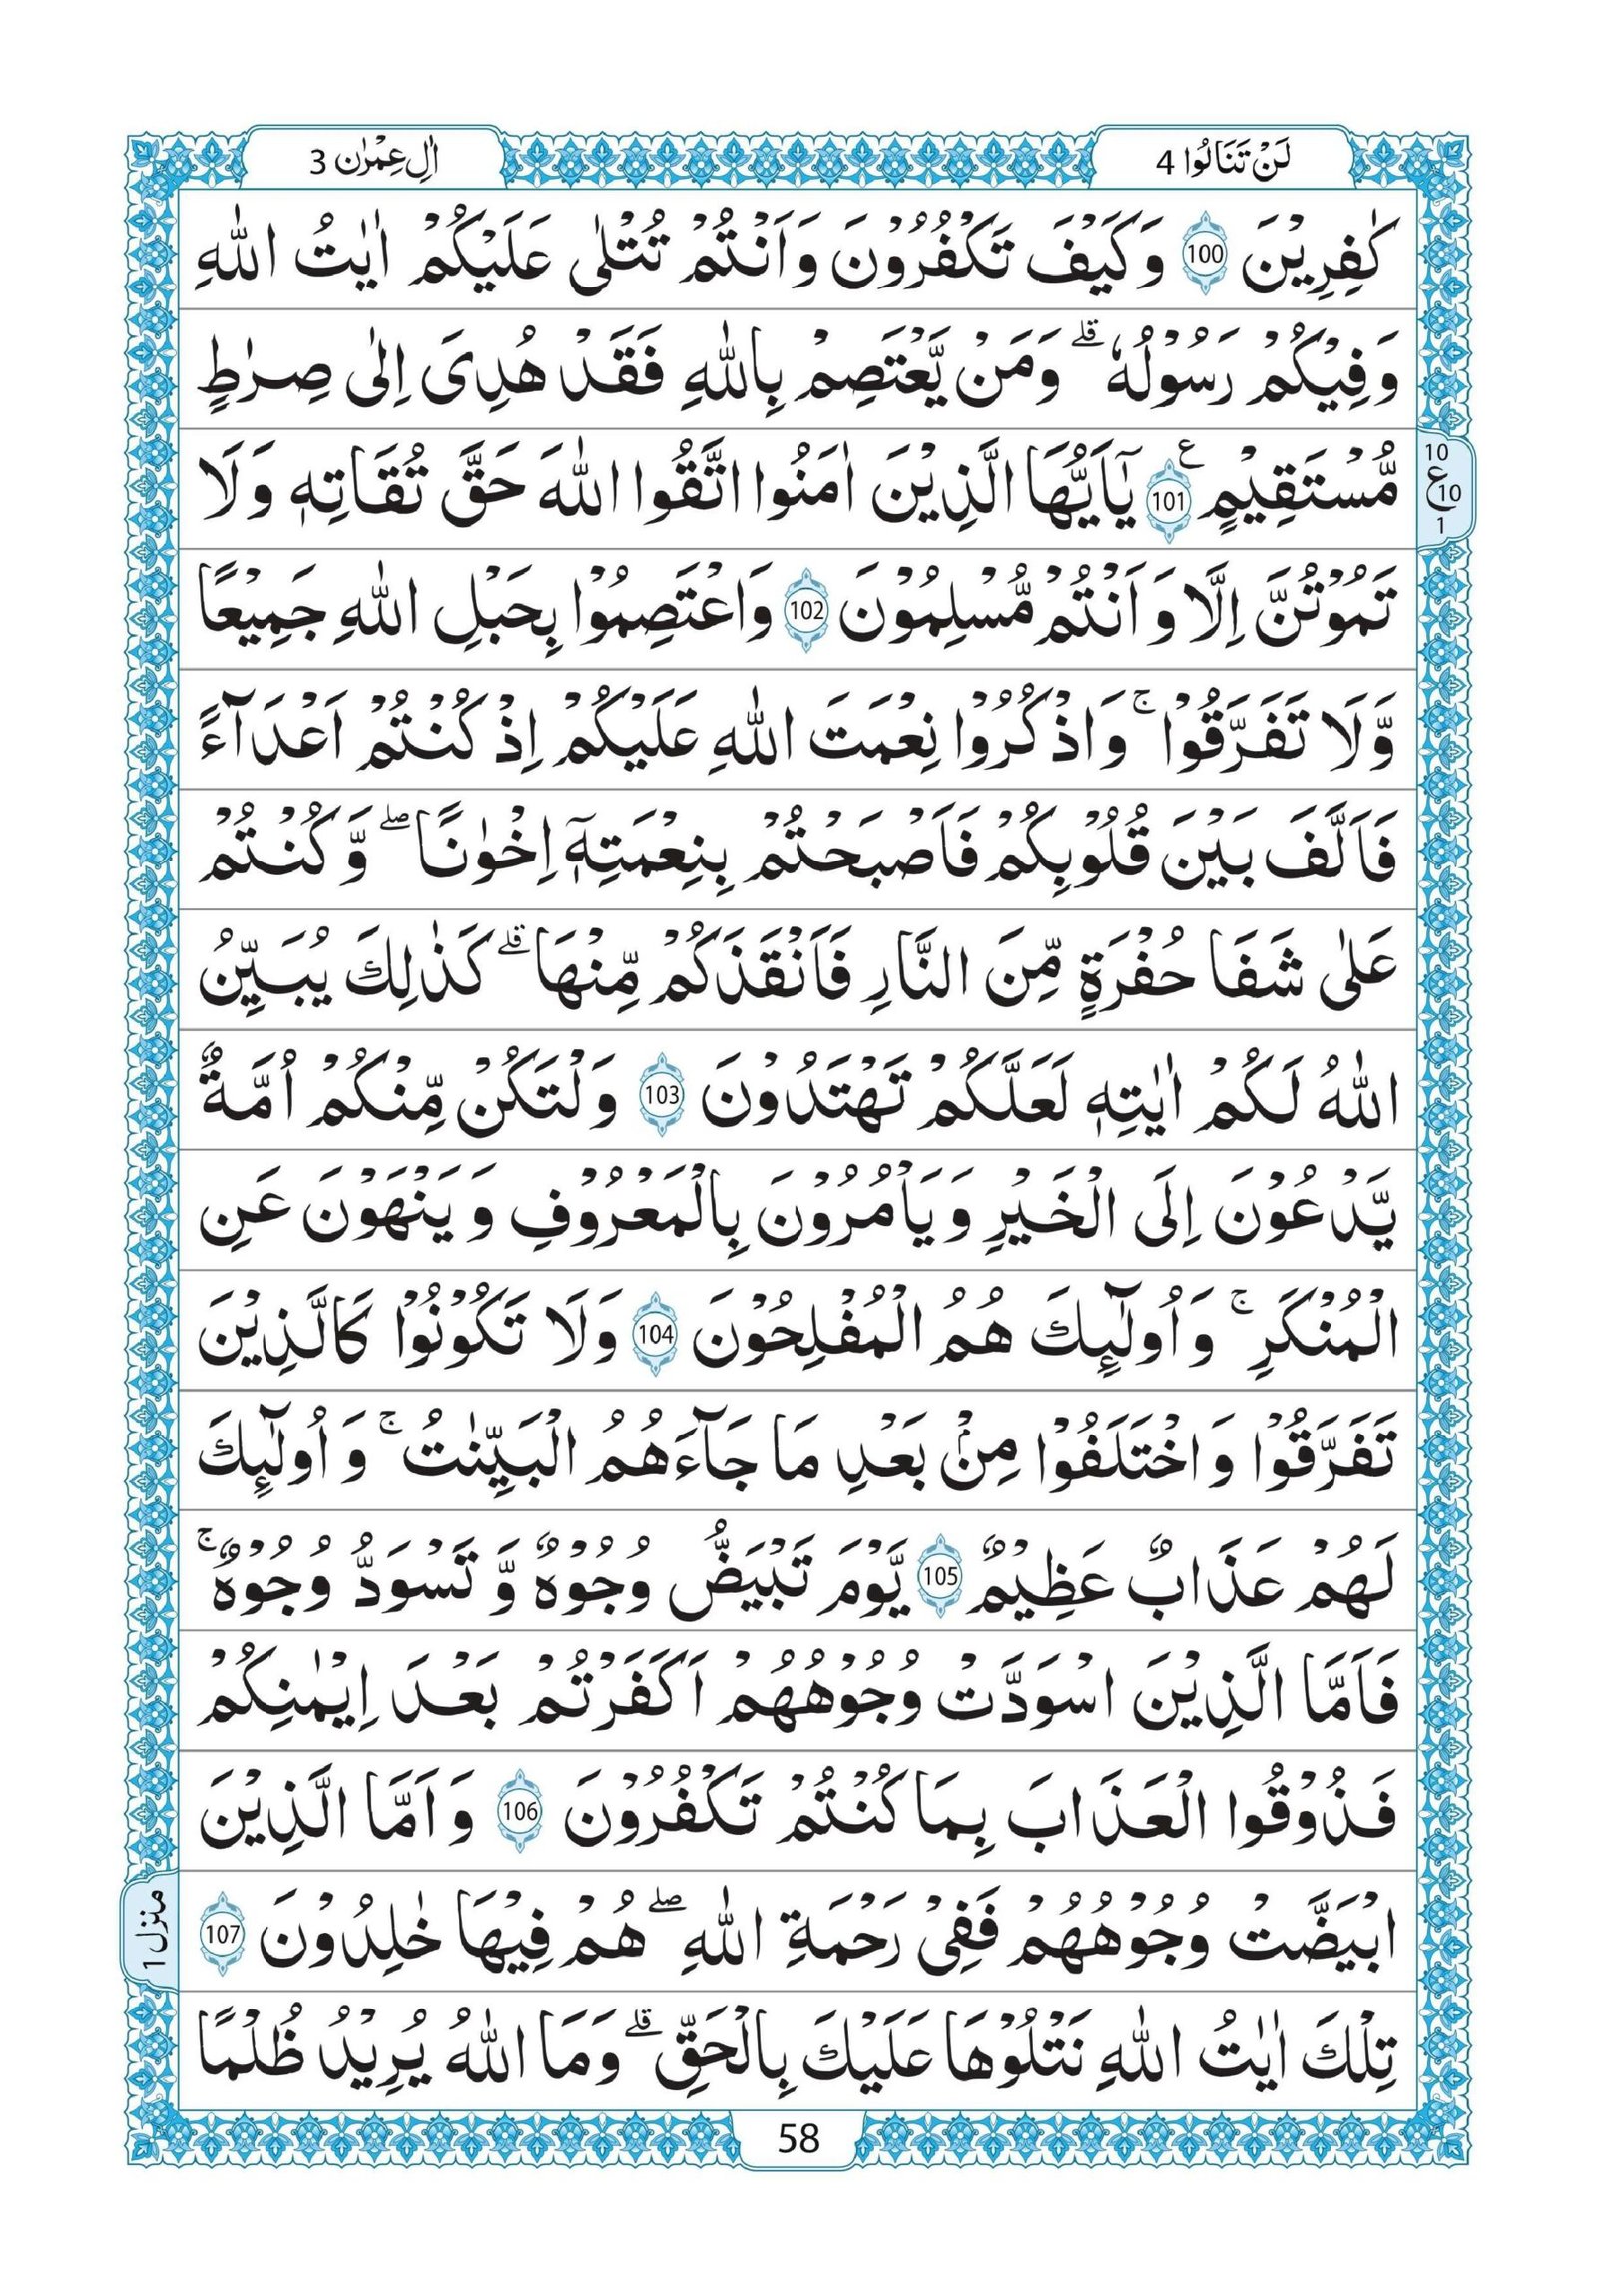 لَنْ تَنَالُوا 4
اٰلِ عِمْرٰن 3
كٰفِرِيْنَ 100 وَكَيْفَ تَكْفُرُوْنَ وَاَنْتُمْ تُتْلٰى عَلَيْكُمْ اٰيٰتُ اللّٰهِ
وَفِيْكُمْ رَسُوْلُهٗ ؕ وَمَنْ يَّعْتَصِمْ بِاللّٰهِ فَقَدْ هُدِىَ اِلٰى صِرٰطٍ
مُّسْتَقِيْمٍ 101 ع يٰۤاَيُّهَا الَّذِيْنَ اٰمَنُوا اتَّقُوا اللّٰهَ حَقَّ تُقَاتِهٖ وَلَا
10
ع 10
1
تَمُوْتُنَّ اِلَّا وَاَنْتُمْ مُّسْلِمُوْنَ 102 وَاعْتَصِمُوْا بِحَبْلِ اللّٰهِ جَمِيْعًا
وَّلَا تَفَرَّقُوْا ۚ وَاذْكُرُوْا نِعْمَتَ اللّٰهِ عَلَيْكُمْ اِذْ كُنْتُمْ اَعْدَآءً
فَاَلَّفَ بَيْنَ قُلُوْبِكُمْ فَاَصْبَحْتُمْ بِنِعْمَتِهٖۤ اِخْوٰنًا ۖ وَّكُنْتُمْ
عَلٰى شَفَا حُفْرَةٍ مِّنَ النَّارِ فَاَنْقَذَكُمْ مِّنْهَا ۗ كَذٰلِكَ يُبَيِّنُ
اللّٰهُ لَكُمْ اٰيٰتِهٖ لَعَلَّكُمْ تَهْتَدُوْنَ 103 وَلْتَكُنْ مِّنْكُمْ اُمَّةٌ
يَّدْعُوْنَ اِلَى الْخَيْرِ وَيَاْمُرُوْنَ بِالْمَعْرُوْفِ وَيَنْهَوْنَ عَنِ
الْمُنْكَرِ ۚ وَاُولٰٓئِكَ هُمُ الْمُفْلِحُوْنَ 104 وَلَا تَكُوْنُوْا كَالَّذِيْنَ
تَفَرَّقُوْا وَاخْتَلَفُوْا مِنْۢ بَعْدِ مَا جَآءَهُمُ الْبَيِّنٰتُ ۚ وَاُولٰٓئِكَ
لَهُمْ عَذَابٌ عَظِيْمٌ 105 يَّوْمَ تَبْيَضُّ وُجُوْهٌ وَّتَسْوَدُّ وُجُوْهٌ ۚ
فَاَمَّا الَّذِيْنَ اسْوَدَّتْ وُجُوْهُهُمْ اَكَفَرْتُمْ بَعْدَ اِيْمٰنِكُمْ
فَذُوْقُوا الْعَذَابَ بِمَا كُنْتُمْ تَكْفُرُوْنَ 106 وَاَمَّا الَّذِيْنَ
ابْيَضَّتْ وُجُوْهُهُمْ فَفِىْ رَحْمَةِ اللّٰهِ ۖ هُمْ فِيْهَا خٰلِدُوْنَ 107
منزل 1
تِلْكَ اٰيٰتُ اللّٰهِ نَتْلُوْهَا عَلَيْكَ بِالْحَقِّ ۗ وَمَا اللّٰهُ يُرِيْدُ ظُلْمًا
58